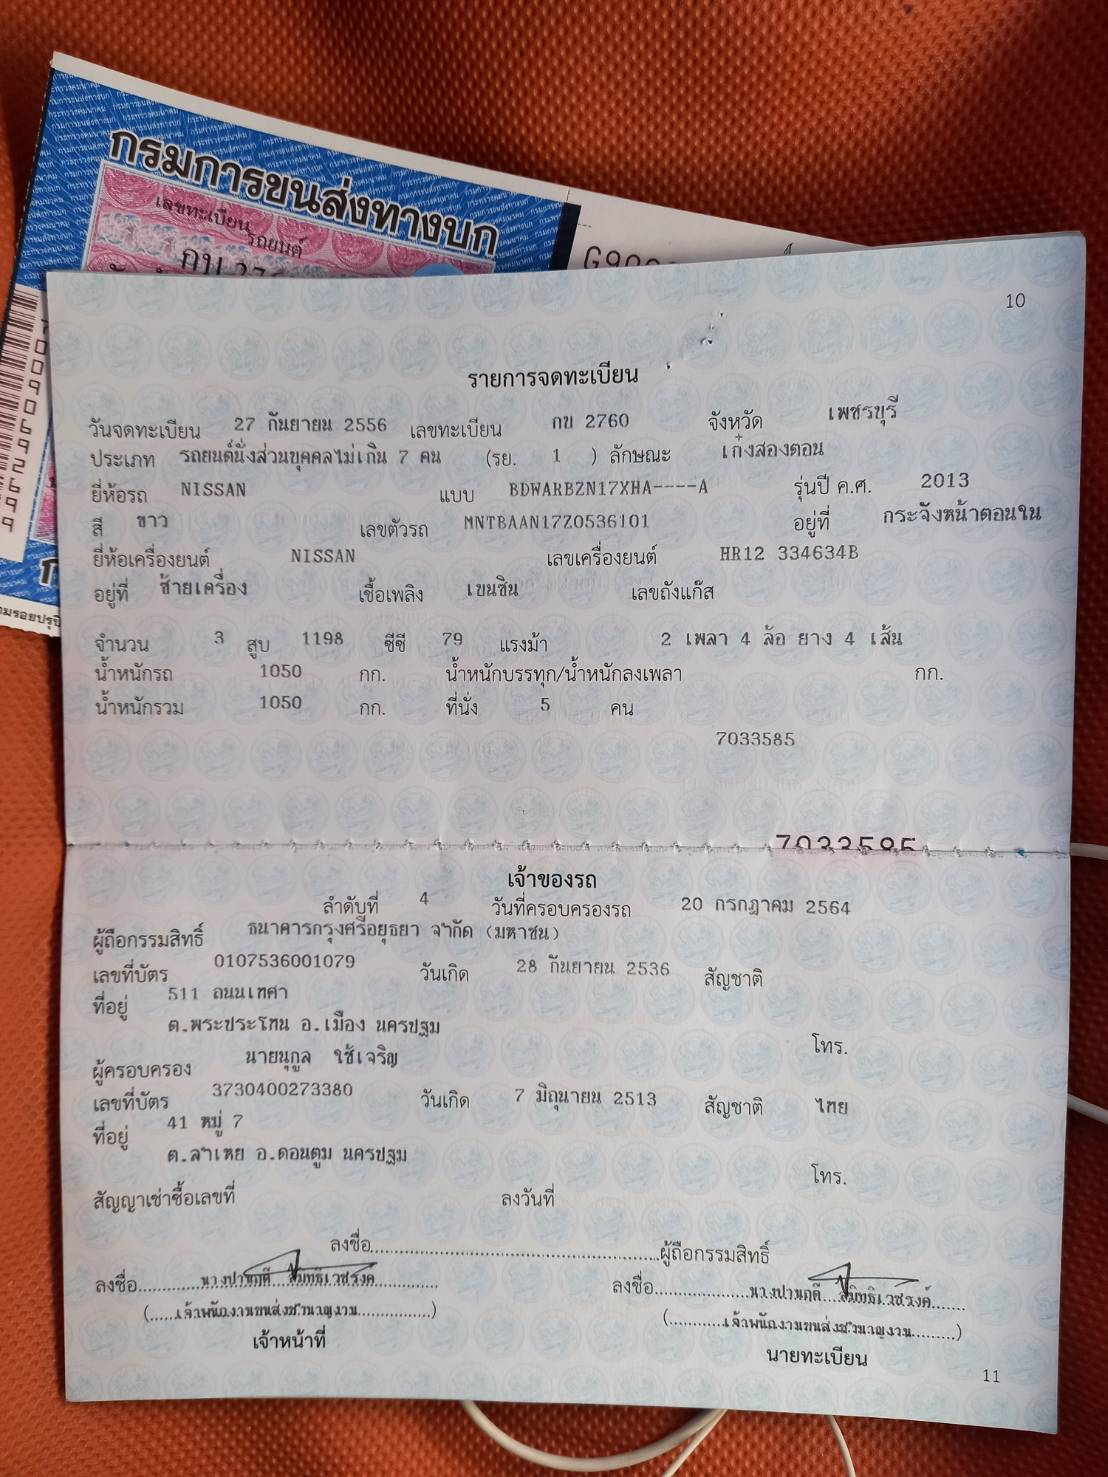 กรมการขนส่งทางบก
เลขทะเบียนรถยนต์
10
รายการจดทะเบียน
วันจดทะเบียน 27 กันยายน 2556 เลขทะเบียน กบ 2760 จังหวัด เพชรบุรี
ประเภท รถยนต์นั่งส่วนบุคคลไม่เกิน 7 คน (รย. 1 ) ลักษณะ เก๋งสองตอน
ยี่ห้อรถ NISSAN แบบ BDWARBZN17XHA----A รุ่นปี ค.ศ. 2013
สี ขาว เลขตัวรถ MNTBAAN17Z0536101 อยู่ที่ กระจังหน้าตอนใน
ยี่ห้อเครื่องยนต์ NISSAN เลขเครื่องยนต์ HR12 334634B
อยู่ที่ ซ้ายเครื่อง เชื้อเพลิง เบนซิน เลขถังแก๊ส
จำนวน 3 สูบ 1198 ซีซี 79 แรงม้า 2 เพลา 4 ล้อ ยาง 4 เส้น
น้ำหนักรถ 1050 กก. น้ำหนักบรรทุก/น้ำหนักลงเพลา กก.
น้ำหนักรวม 1050 กก. ที่นั่ง 5 คน
7033585
7033585
เจ้าของรถ
ลำดับที่ 4 วันที่ครอบครองรถ 20 กรกฎาคม 2564
ผู้ถือกรรมสิทธิ์ ธนาคารกรุงศรีอยุธยา จำกัด (มหาชน)
เลขที่บัตร 0107536001079 วันเกิด 28 กันยายน 2536 สัญชาติ
ที่อยู่ 511 ถนนเทศา
ต.พระประโทน อ.เมือง นครปฐม
โทร.
ผู้ครอบครอง นายนุกูล ใช้เจริญ
เลขที่บัตร 3730400273380 วันเกิด 7 มิถุนายน 2513 สัญชาติ ไทย
ที่อยู่ 41 หมู่ 7
ต.ลำเหย อ.ดอนตูม นครปฐม
โทร.
สัญญาเช่าซื้อเลขที่ ลงวันที่
ลงชื่อ................................................ผู้ถือกรรมสิทธิ์
ลงชื่อ...........นางปานฤดี ........... ลงชื่อ...........นางปานฤดี ...........
(.....เจ้าพนักงานขนส่งชำนาญงาน.............) (..........เจ้าพนักงานขนส่งชำนาญงาน.........)
เจ้าหน้าที่ นายทะเบียน
11